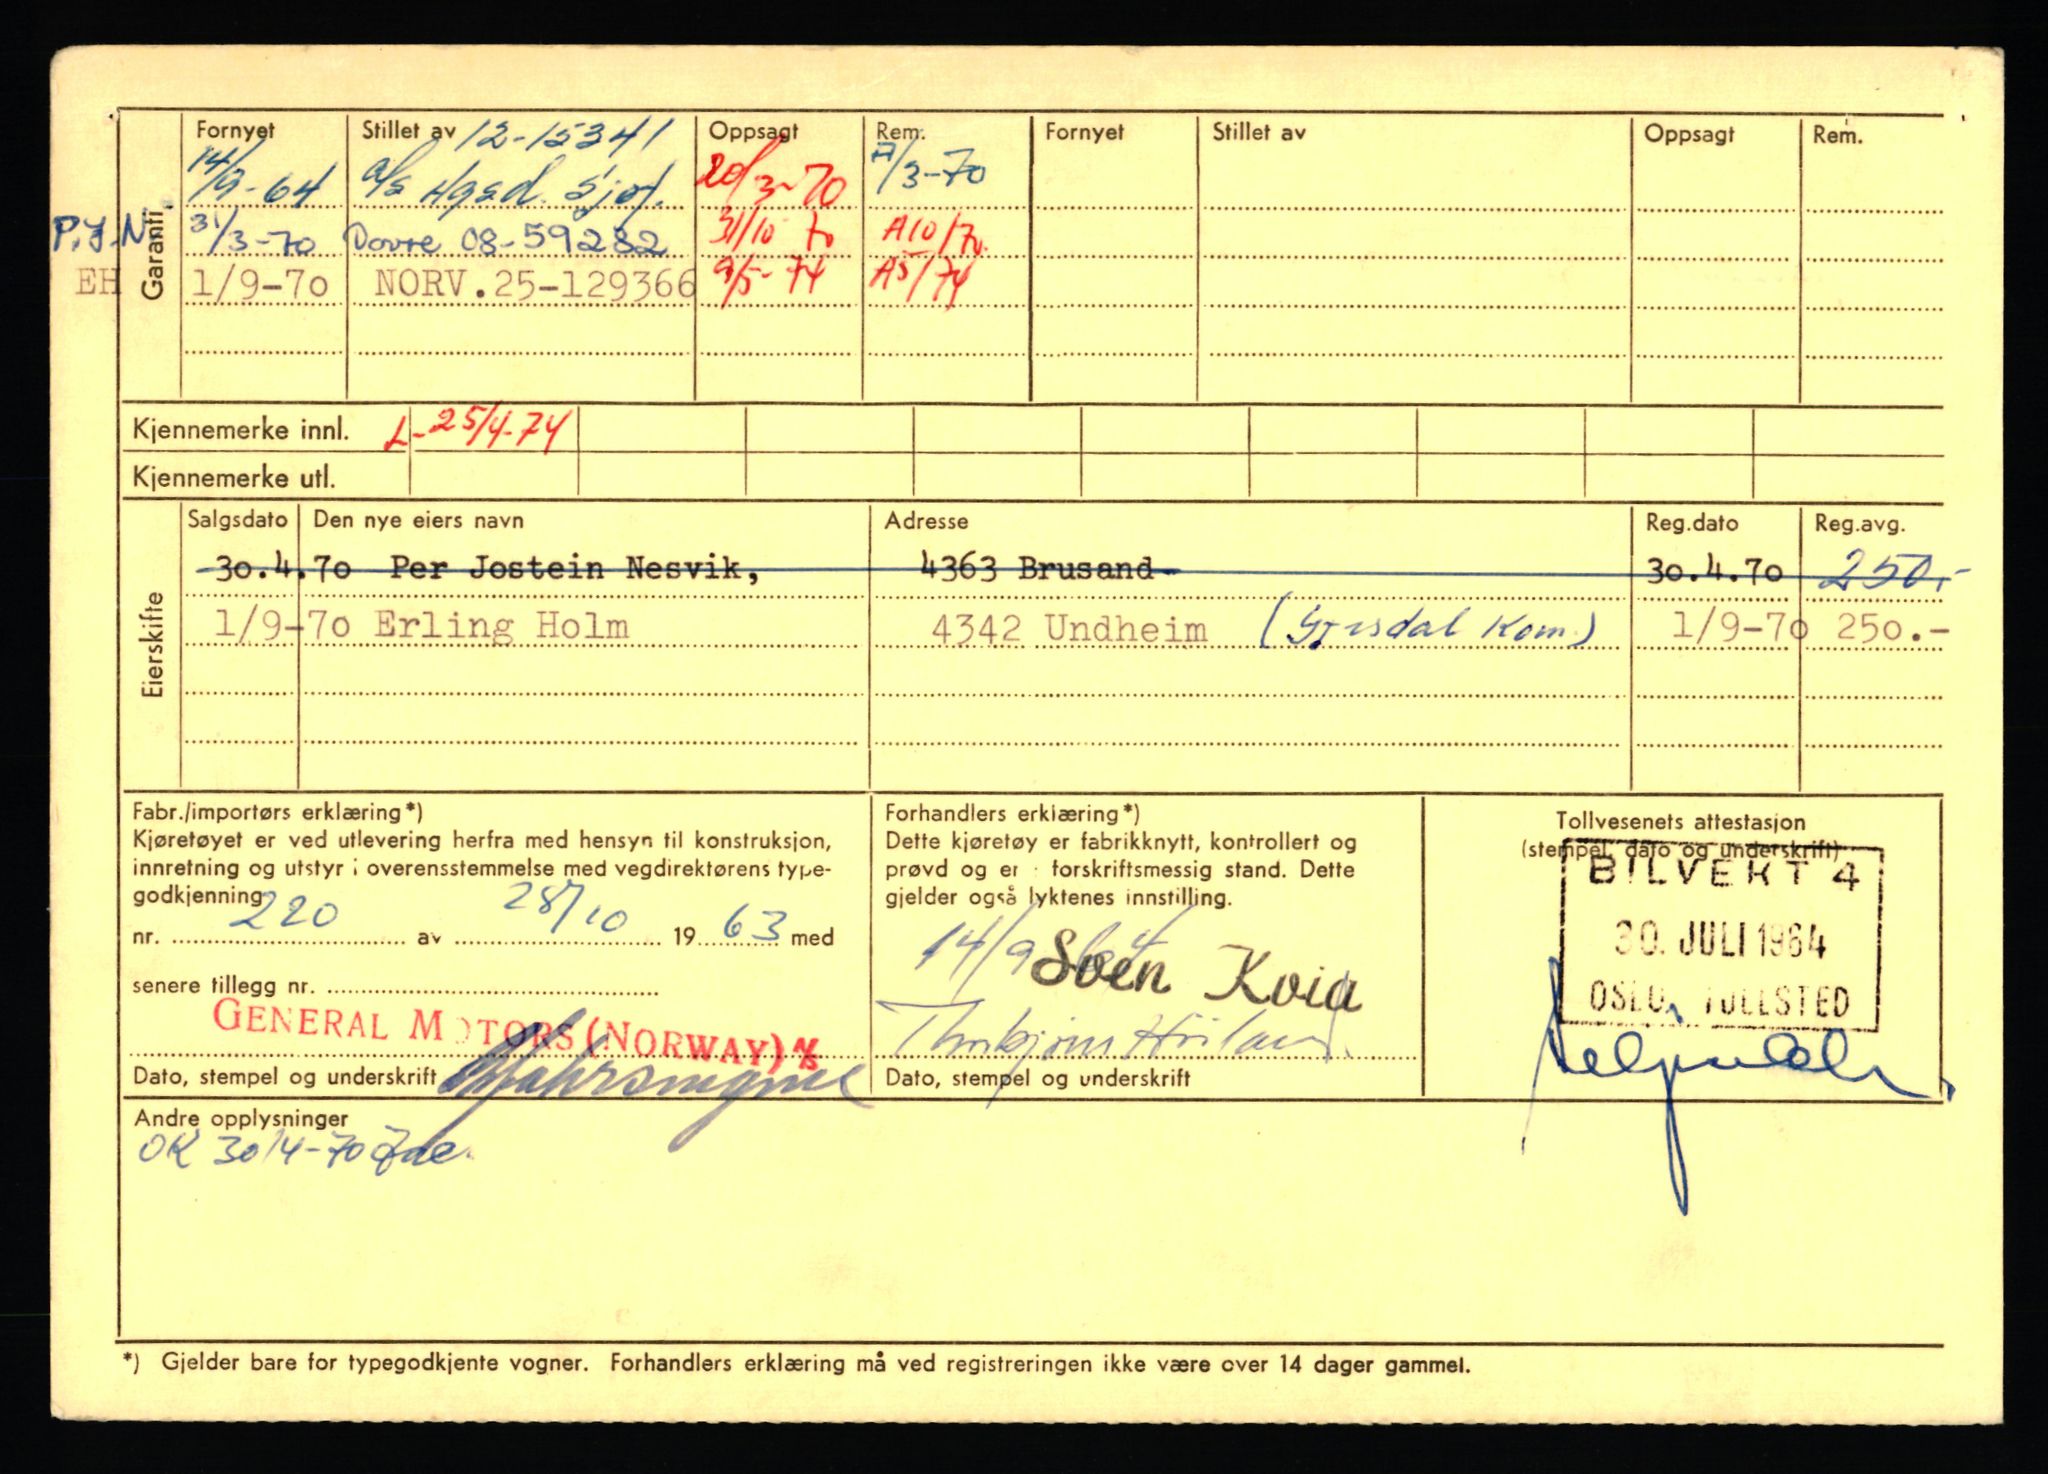 Fornyet Stillet av 12-15341 Oppsagt Rem. Fornyet Stillet av Oppsagt Rem.
14/9-64 a/s Agsd. Sjøf. 20/3-70 A/3-70
P.J.N. 31/3-70 Dovre 08-59282 31/10 70 A10/70.
EH 1/9-70 NORV.25-129366 9/5-74 A5/74
Garanti
Kjennemerke innl. L-25/4-74
Kjennemerke utl.
Eierskifte
Salgsdato Den nye eiers navn Adresse Reg.dato Reg.avg.
30.4.70 Per Jostein Nesvik, 4363 Brusand 30.4.70 250.-
1/9-70 Erling Holm 4342 Undheim (Gjesdal Kom.) 1/9-70 250.-
Fabr./importørs erklæring*)
Kjøretøyet er ved utlevering herfra med hensyn til konstruksjon,
innretning og utstyr i overensstemmelse med vegdirektørens type-
godkjenning
nr. 220 av 28/10 1963 med
senere tillegg nr.
GENERAL MOTORS (NORWAY) A/S
Dato, stempel og underskrift
Forhandlers erklæring*)
Dette kjøretøy er fabrikknytt, kontrollert og
prøvd og er i forskriftsmessig stand. Dette
gjelder også lyktenes innstilling.
14/9 64 Sven Kvia
Thorbjørn Høiland
Dato, stempel og underskrift
Tollvesenets attestasjon
(stempel, dato og underskrift)
BILVEKT 4
30. JULI 1964
OSLO TOLLSTED
Andre opplysninger
OK 30/4-70
*) Gjelder bare for typegodkjente vogner. Forhandlers erklæring må ved registreringen ikke være over 14 dager gammel.